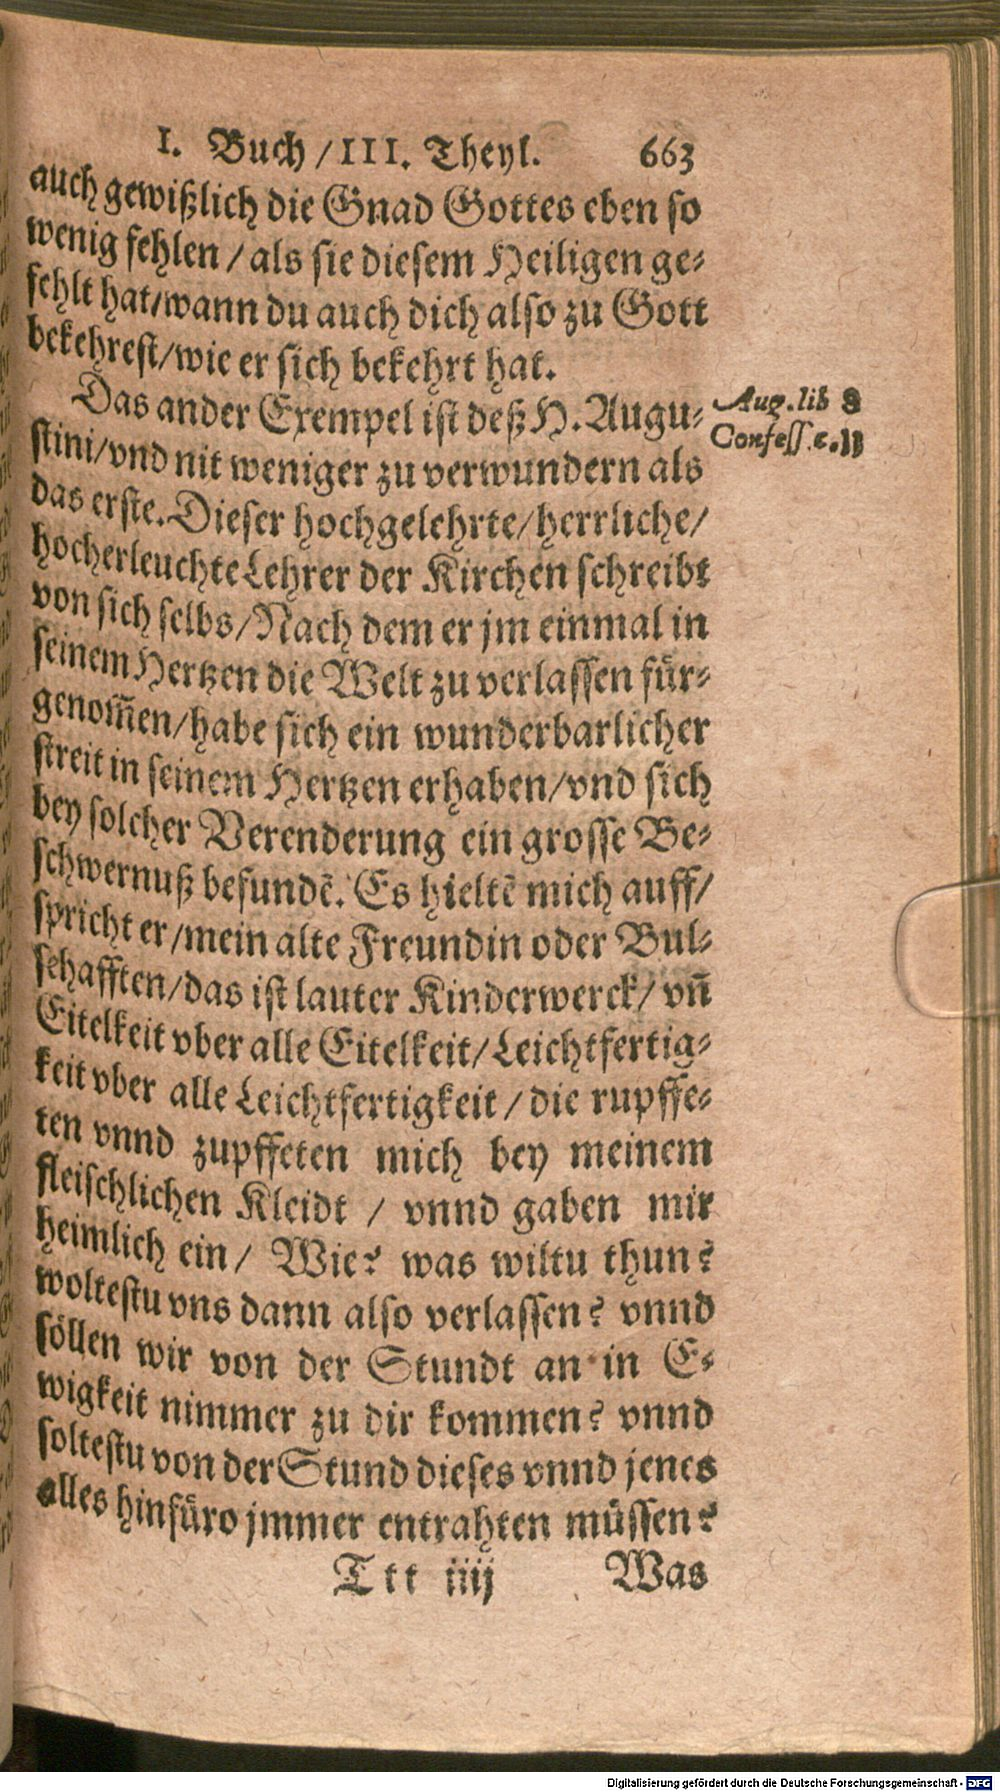 I. Buch / III. Theyl. 663
auch gewißlich die Gnad Gottes eben so
wenig fehlen / als sie diesem Heiligen ge-
fehlt hat/wann du auch dich also zu Gott
bekehrest/wie er sich bekehrt hat.
Das ander Exempel ist deß H. Augu-
Aug. lib 8
Confess. c. 11
stini/vnd nit weniger zu verwundern als
das erste. Dieser hochgelehrte/herrliche/
hocherleuchte Lehrer der Kirchen schreibt
von sich selbs/Nach dem er jm einmal in
seinem Hertzen die Welt zu verlassen für-
genom̃en/habe sich ein wunderbarlicher
streit in seinem Hertzen erhaben/vnd sich
bey solcher Verenderung ein grosse Be-
schwernuß befundẽ. Es hieltẽ mich auff/
spricht er/mein alte Freundin oder Bul-
schafften/das ist lauter Kinderwerck/ vñ
Eitelkeit vber alle Eitelkeit/Leichtfertig-
keit vber alle Leichtfertigkeit / die rupffe-
ten vnnd zupffeten mich bey meinem
fleischlichen Kleidt / vnnd gaben mir
heimlich ein/ Wie? was wiltu thun?
woltestu vns dann also verlassen? vnnd
söllen wir von der Stundt an in E-
wigkeit nimmer zu dir kommen? vnnd
soltestu von der Stund dieses vnnd jenes
alles hinfüro jmmer entrahten müssen?
Ttt iiij Was
Digitalisierung gefördert durch die Deutsche Forschungsgemeinschaft - DFG